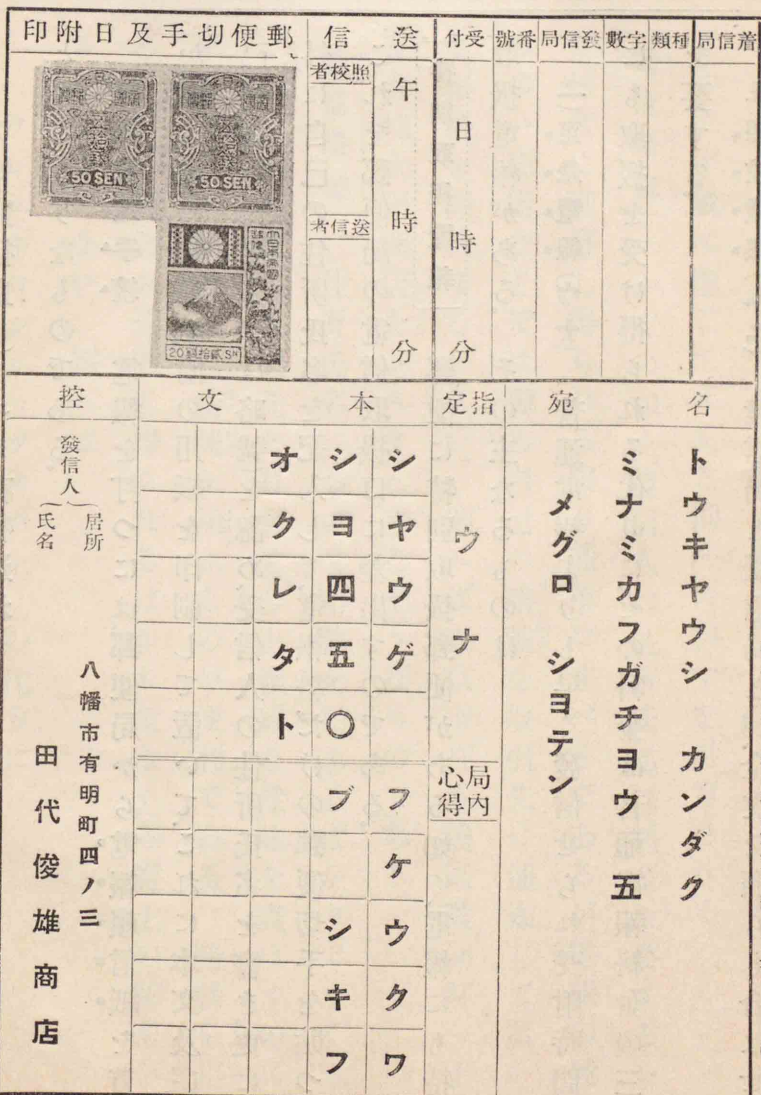 着信局
種類
字數
發信局
番號
受付
日 時 分
送信
午 時 分
照校者
送信者
郵便切手及日附印
50 SEN
50 SEN
大日本帝國郵便
20 錢拾貳 SN
名宛
トウキヤウシ カンダク
ミナミカフガチヨウ 五
メグロ シヨテン
指定
ウナ
局内心得
本文
シヤウゲ フケウクワ
シヨ四五〇ブ シキフ
オクレタト
控
發信人
居所
氏名
八幡市有明町四ノ三
田代俊雄商店